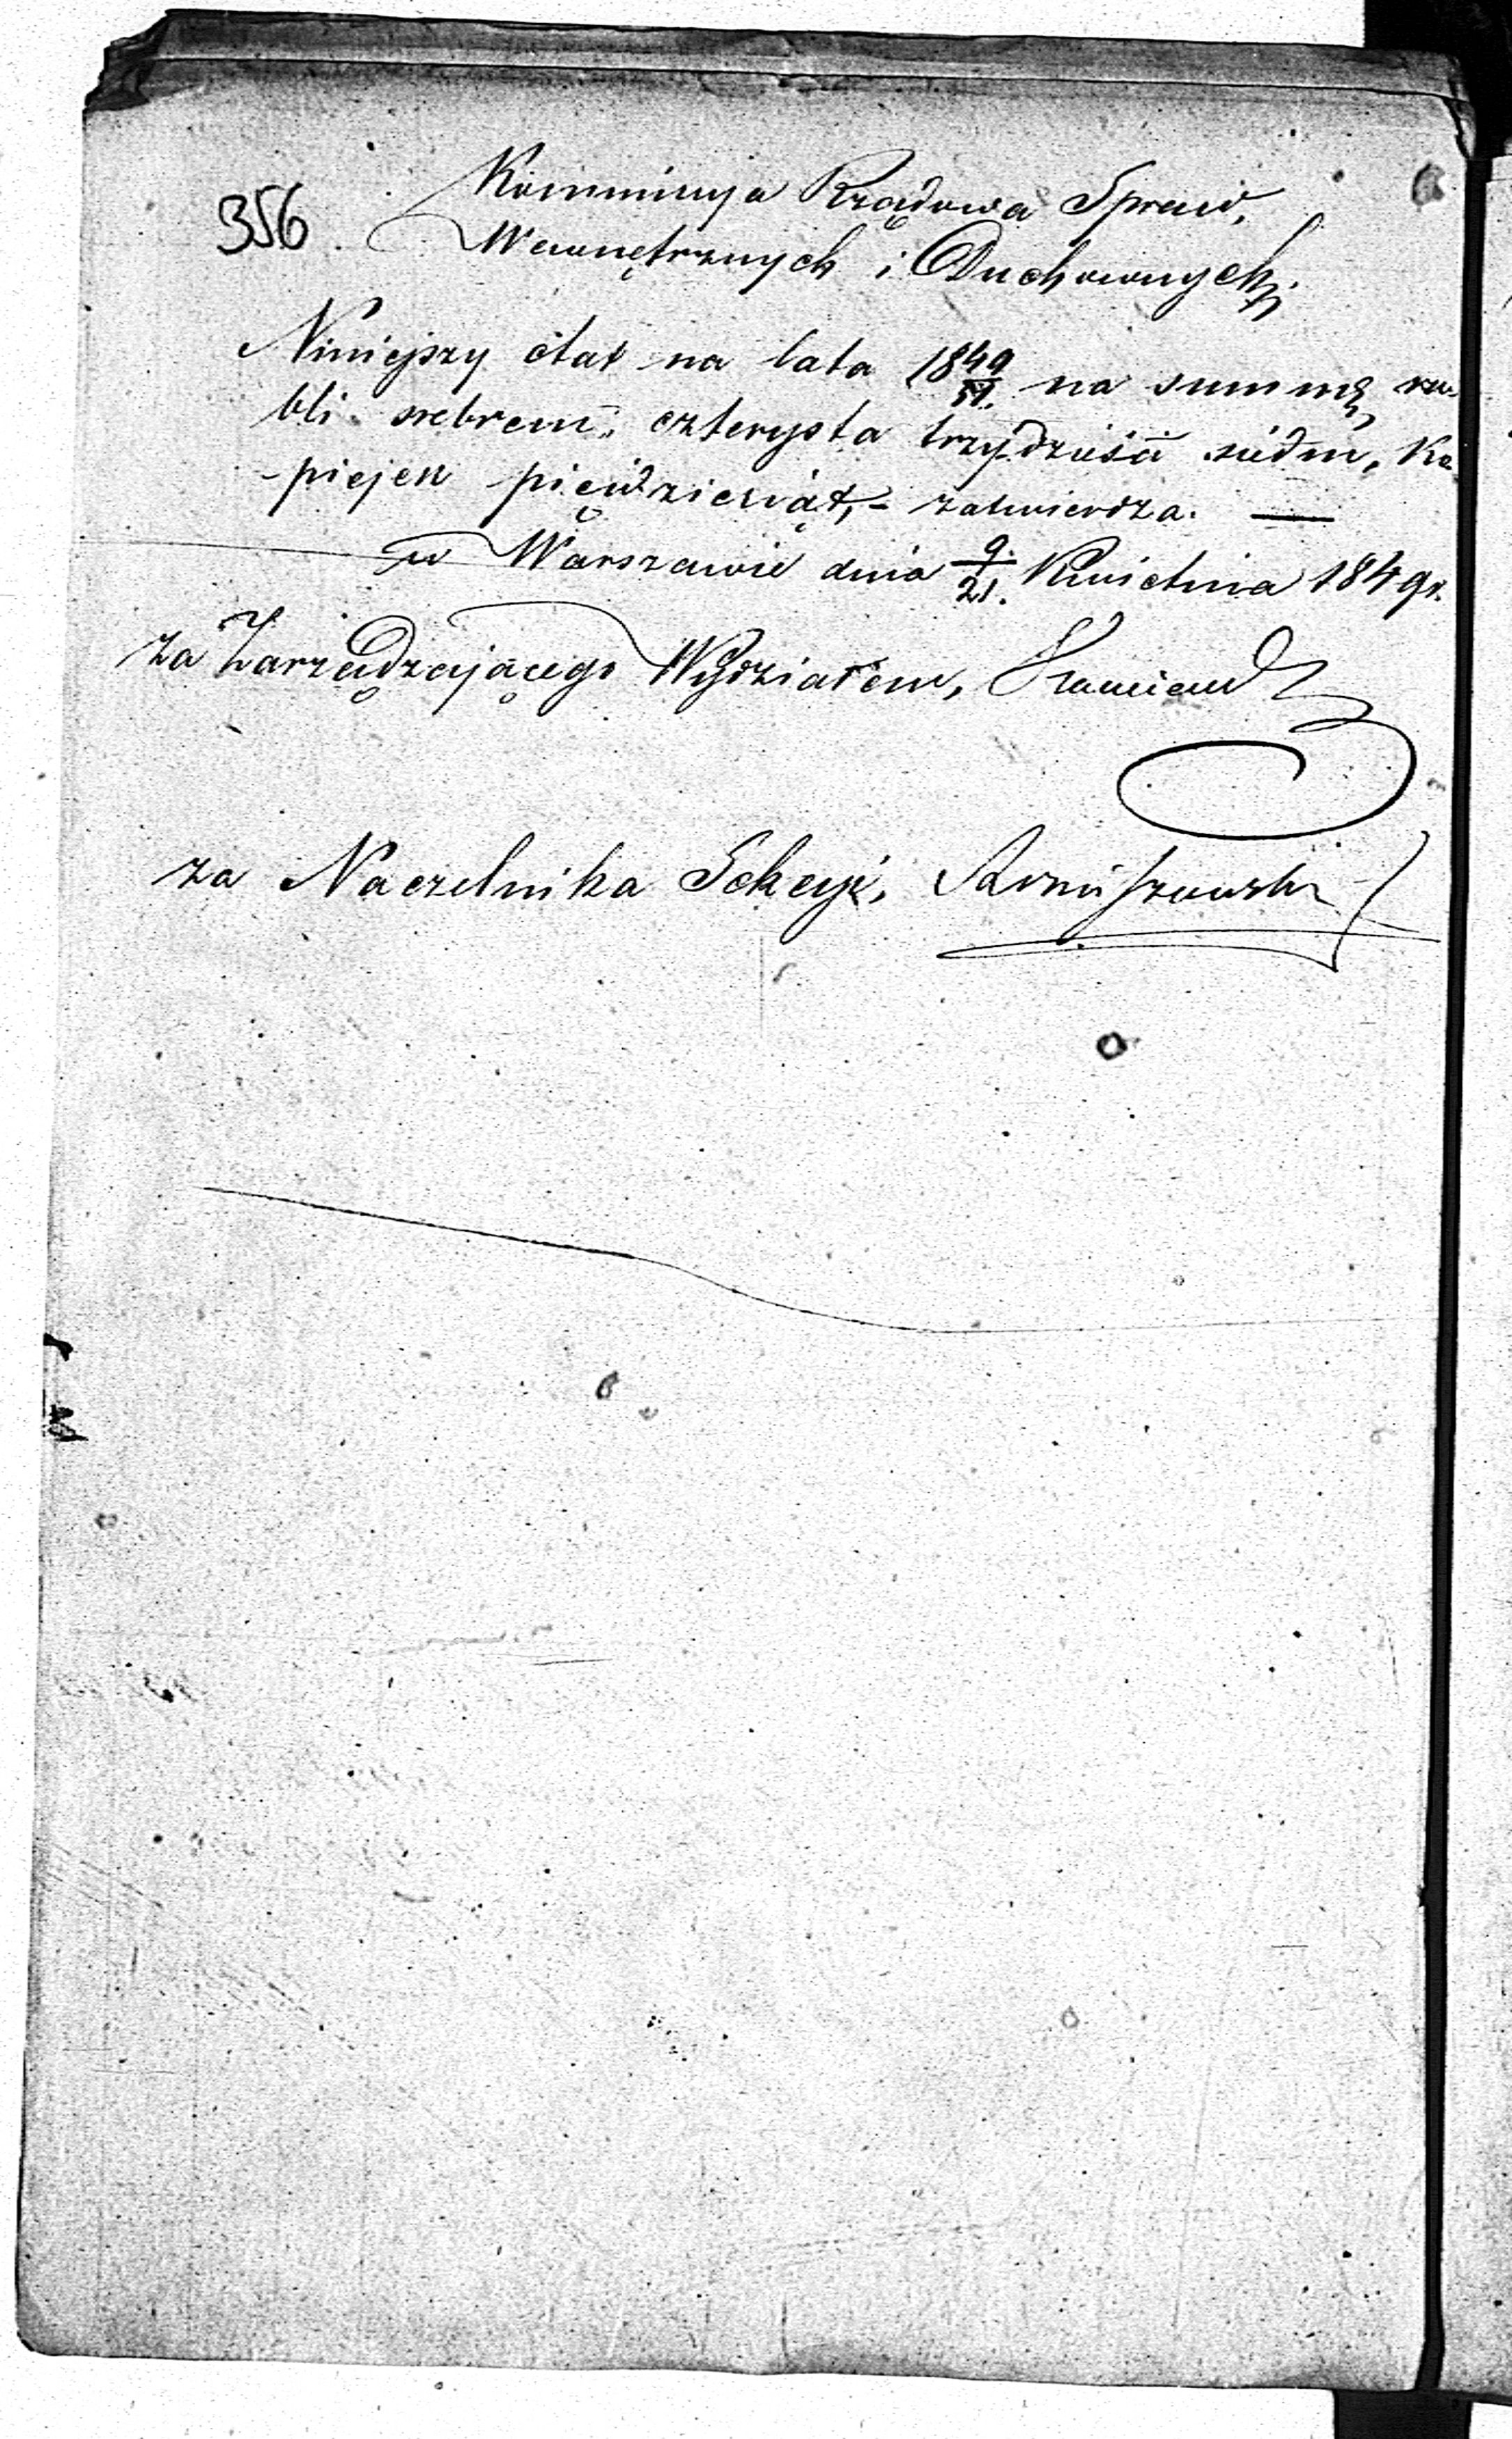 356.
Kommissya Rządowa Spraw,
Wewnętrznych i Duchownych;
Niniejszy état na lata 1849/51. na summę, ru-
bli srebrem, czterysta trzydzieści siedm, Ko
-piejek pięćdziesiąt, - zatwierdza. —
w Warszawie dnia 9./21. Kwietnia 1849 r.
za Zarządzającego Wydziałem,
za Naczelnika Sekcyi,